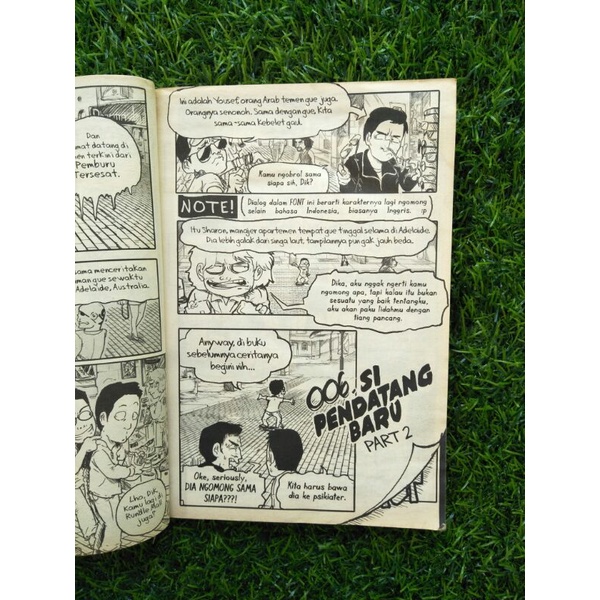 Dan
mat datang di
en terkini dari
Pemburu
Tersesat.
sama menceritakan
man gue sewaktu
Adelaide, Australia.
Lho, Dik.
Kamu lagi di
Rundle Mall
juga?
Ini adalah Yousef, orang Arab temen gue juga.
Orangnya senonoh. Sama dengan gue, kita
sama-sama kebelet gaul.
Kamu ngobrol sama
siapa sih, Dik?
NOTE!
Dialog dalam FONT ini berarti karakternya lagi ngomong
selain bahasa Indonesia, biasanya Inggris. :p
Itu Sharon, manajer apartemen tempat gue tinggal selama di Adelaide.
Dia lebih galak dari singa laut, tampilannya pun gak jauh beda.
Dika, aku nggak ngerti kamu
ngomong apa, tapi kalau itu bukan
sesuatu yang baik tentangku,
aku akan paku lidahmu dengan
tiang pancang.
Anyway, di buku
sebelumnya ceritanya
begini nih...
006. SI
PENDATANG
BARU
PART 2
Oke, seriously,
DIA NGOMONG SAMA
SIAPA???!
Kita harus bawa
dia ke psikiater.